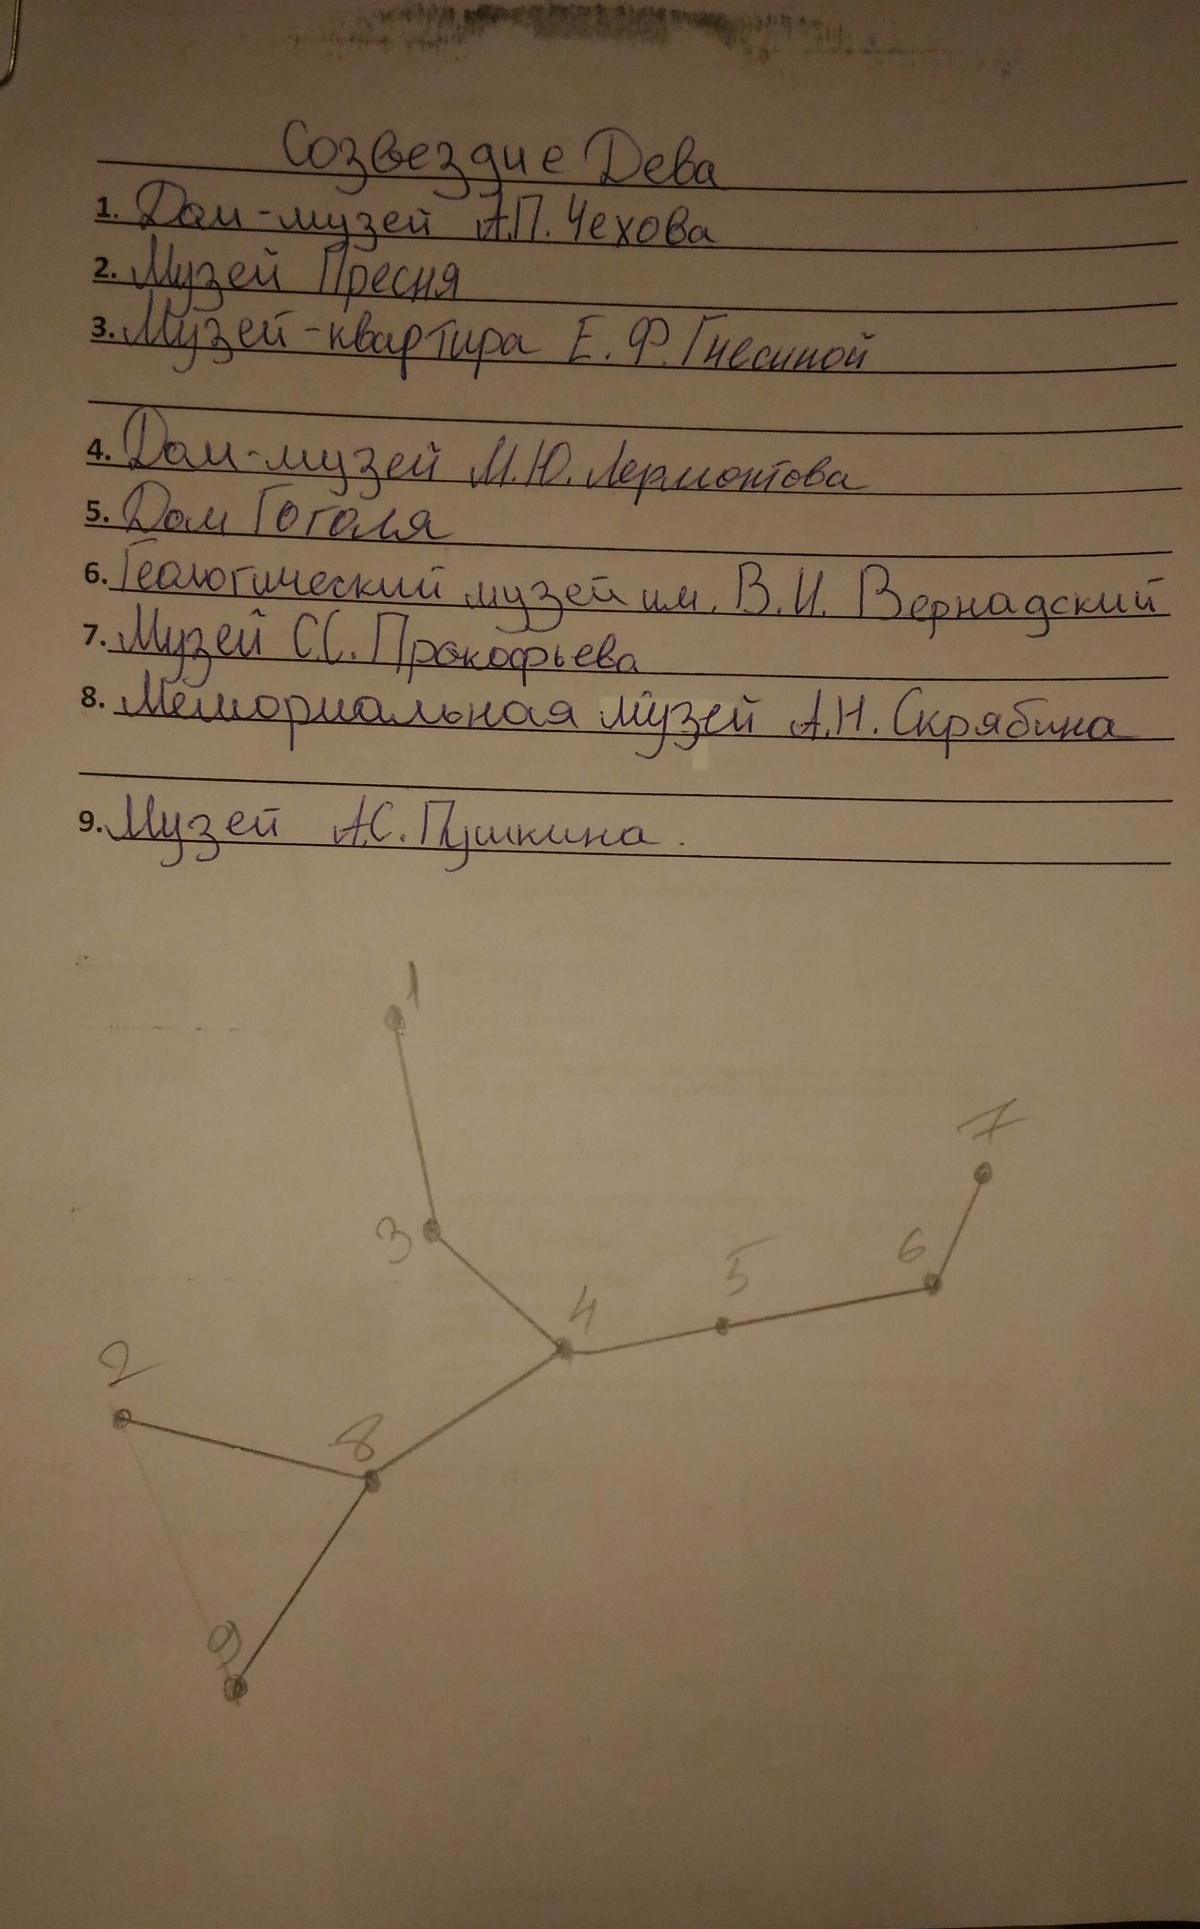 Созвездие Дева
1. Дом-музей А.П. Чехова
2. Музей Пресня
3. Музей-квартира Е.Ф. Гнесиной
4. Дом-музей М.Ю. Лермонтова
5. Дом Гоголя
6. Геологический музей им. В.И. Вернадский
7. Музей С.С. Прокофьева
8. Мемориальная музей А.Н. Скрябина
9. Музей А.С. Пушкина.
1
7
3
6
5
4
2
8
9